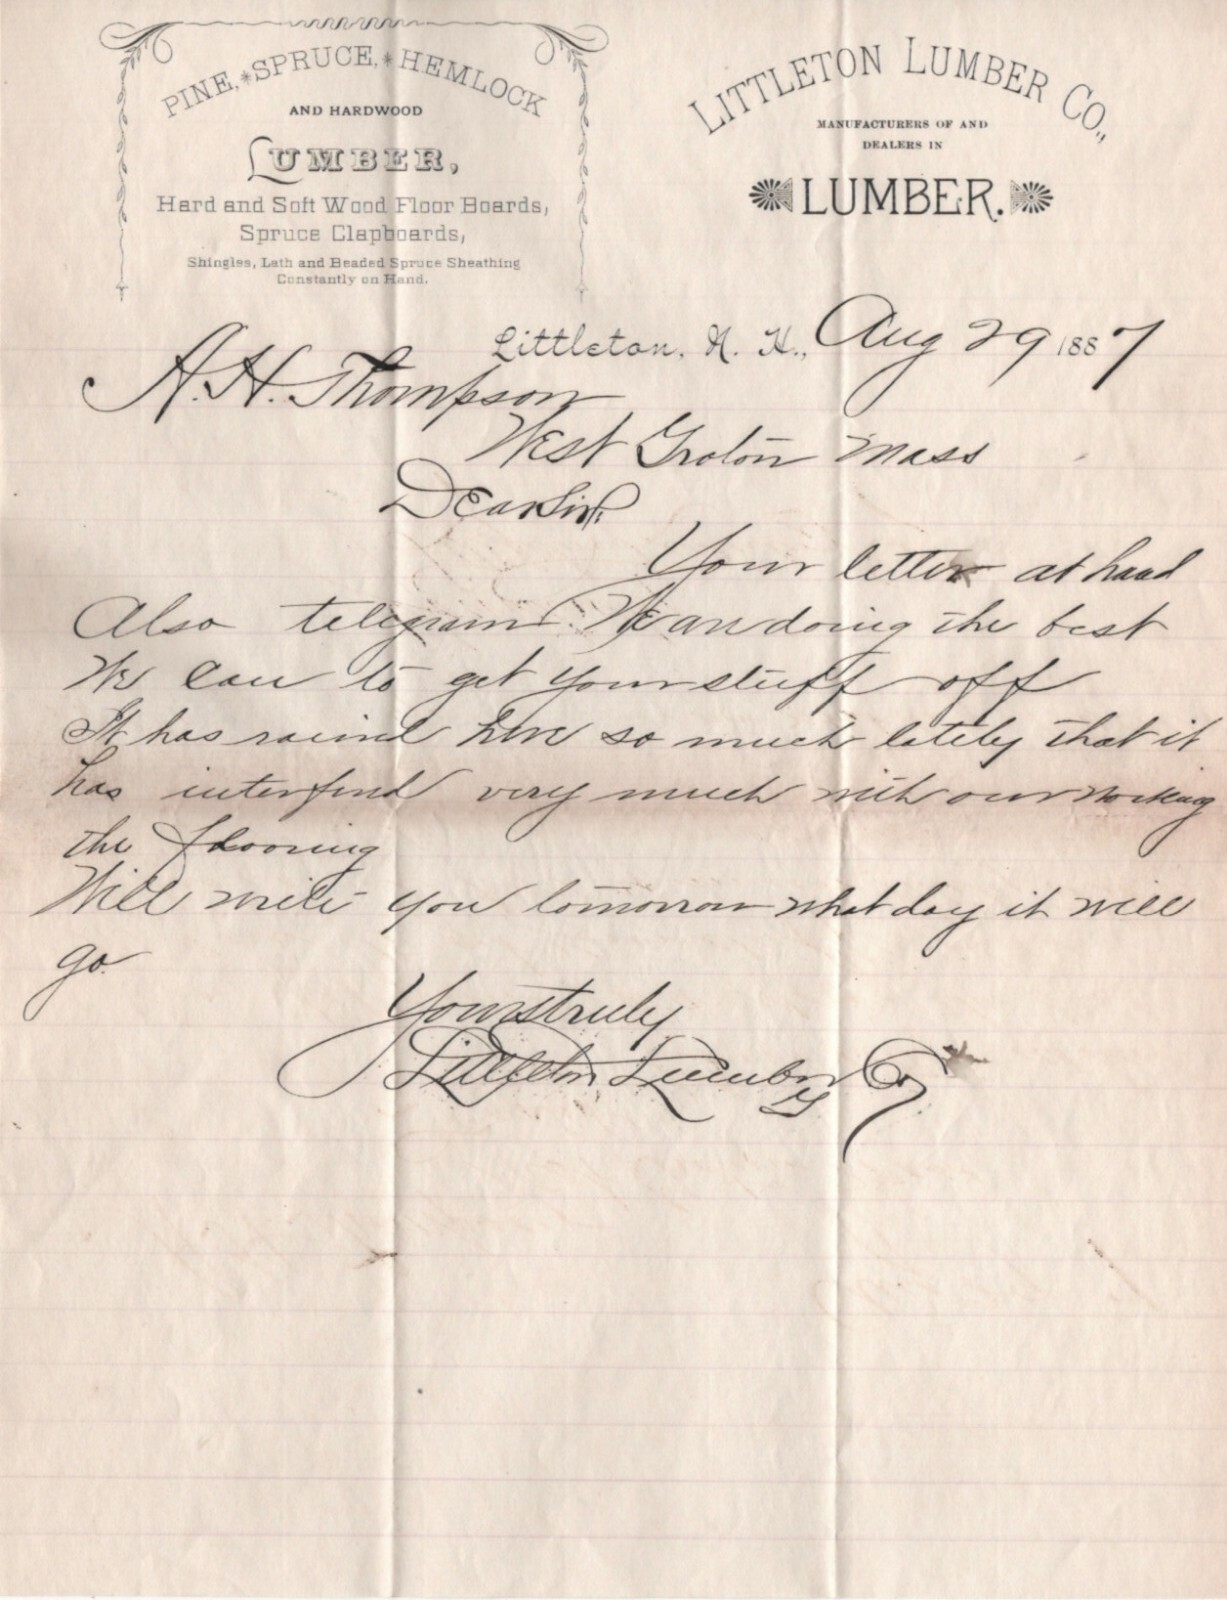 PINE, * SPRUCE, * HEMLOCK
AND HARDWOOD
LUMBER,
Hard and Soft Wood Floor Boards,
Spruce Clapboards,
Shingles, Lath and Beaded Spruce Sheathing
Constantly on Hand.
LITTLETON LUMBER CO.,
MANUFACTURERS OF AND
DEALERS IN
LUMBER.
Littleton, N. H., Aug 29 1887
A. H. Thompson
West Groton Mass
Dear Sir
Your letter at hand
Also telegram. We are doing the best
We can to get your stuff off
It has raind here so much lately that it
has interfered very much with our working
the flooring
Will write you tomorrow what day it will
go.
Yours truly
Littleton Lumber Co